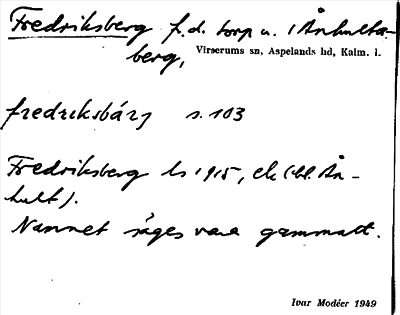 Fredriksberg f.d. torp u. (Ånhulta-
berg, Virserums sn, Aspelands hd, Kalm. l.
fredriksbárj s. 103
Fredriksberg ls 1915, ek (bl. Ån-
hult).
Namnet säges vara gammalt.
Ivar Modéer 1949